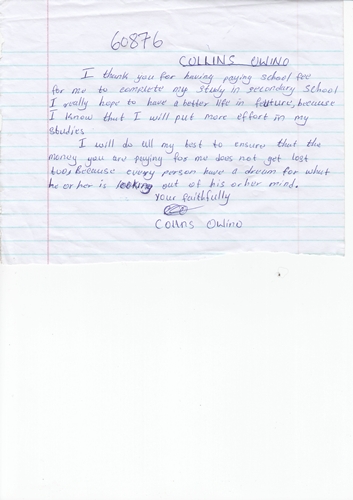 60876
COLLINS OWINO
I thank you for having paying school fee
for me to complete my study in secondary school
I really hope to have a better life in future, because
I know that I will put more effort in my
studies
I will do all my best to ensure that the
money you are paying for me does not get lost
Because every person have a dream for what
he or her is looking out of his or her mind.
Your faithfully
Collins Owino